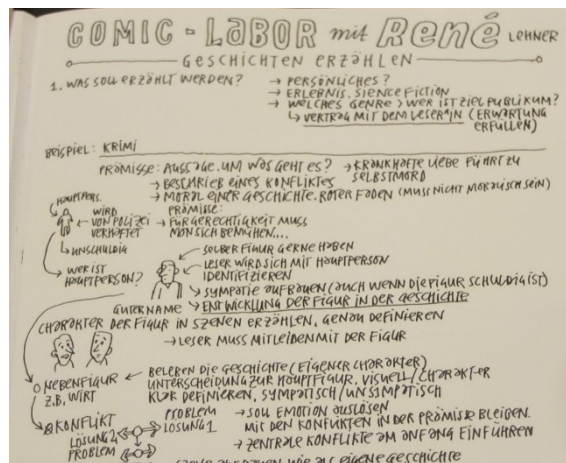 COMIC-LABOR mit René LEHNER
GESCHICHTEN ERZÄHLEN
1. WAS SOLL ERZÄHLT WERDEN? → PERSÖNLICHES?
→ ERLEBNIS. SIENCE FICTION
→ WELCHES GENRE > WER IST ZIELPUBLIKUM?
↳ VERTRAG MIT DEM LESER*IN (ERWARTUNG
ERFÜLLEN)
BEISPIEL: KRIMI
PRÄMISSE: AUSSAGE. UM WAS GEHT ES? → KRANKHAFTE LIEBE FÜHRT ZU
SELBSTMORD
→ BESCHRIEB EINES KONFLIKTES
→ MORAL EINER GESCHICHTE. ROTER FADEN (MUSS NICHT MORALISCH SEIN)
HAUPTPERS.
WIRD
VON POLIZEI
VERHAFTET
PRÄMISSE:
→ FÜR GERECHTIGKEIT MUSS
MAN SICH BEMÜHEN...
↳ UNSCHULDIG
↳ WER IST
HAUPTPERSON?
SELBER FIGUR GERNE HABEN
LESER WIRD SICH MIT HAUPTPERSON
IDENTIFIZIEREN
→ SYMPATIE AUFBAUEN (AUCH WENN DIE FIGUR SCHULDIG IST)
GUTER NAME → ENTWICKLUNG DER FIGUR IN DER GESCHICHTE
CHARAKTER DER FIGUR IN SZENEN ERZÄHLEN, GENAU DEFINIEREN
→ LESER MUSS MITLEIDEN MIT DER FIGUR
NEBENFIGUR
Z.B. WIRT
← BELEBEN DIE GESCHICHTE (EIGENER CHARAKTER)
UNTERSCHEIDUNG ZUR HAUPTFIGUR, VISUELL/CHARAKTER
KLAR DEFINIEREN, SYMPATISCH/UNSYMPATISCH
KONFLIKT
LÖSUNG 2
PROBLEM
PROBLEM
LÖSUNG 1
→ SOLL EMOTION AUSLÖSEN
MIT DEN KONFLIKTEN IN DER PRÄMISSE BLEIBEN.
→ ZENTRALE KONFLIKTE AM ANFANG EINFÜHREN
WIE ALS EIGENE GESCHICHTE